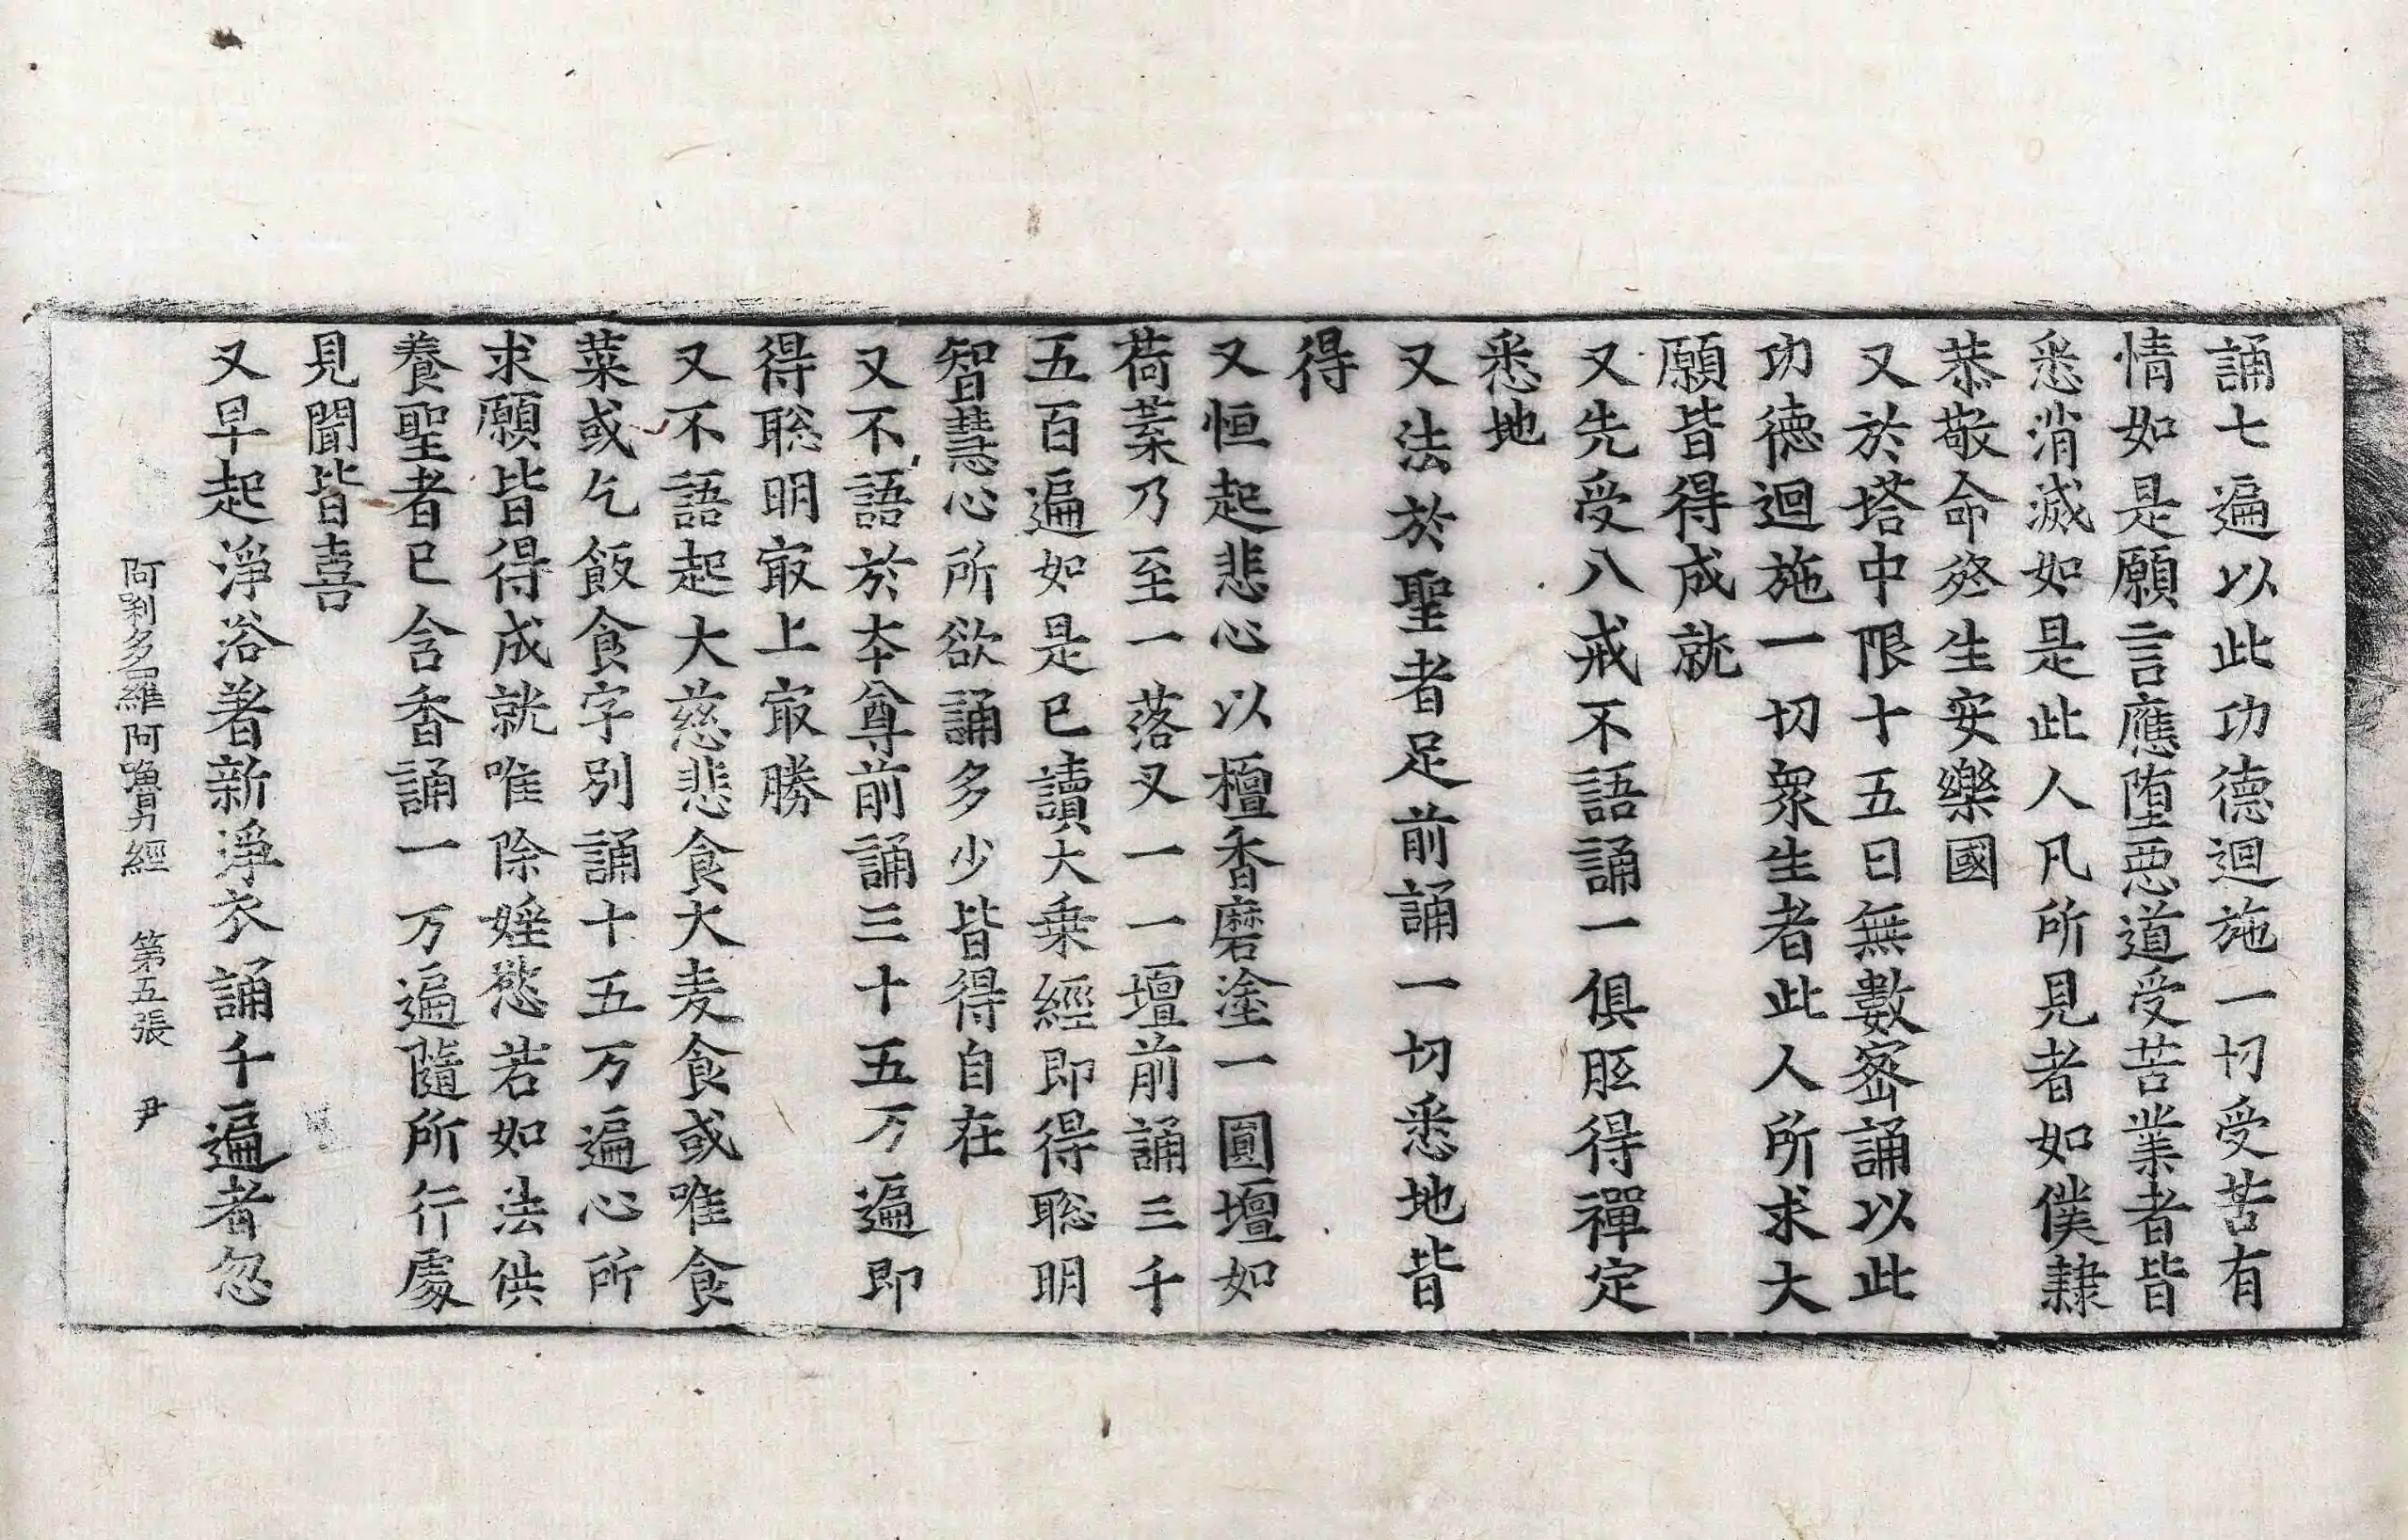 誦七遍以此功德迴施一切受苦有
情如是願言應堕惡道受苦業者皆
悉消滅如是此人凡所見者如僕隸
恭敬命終生安樂國
又於塔中限十五日無數宻誦以此
功德迴施一切衆生者此人所求大
願皆得成就
又先受八戒不語誦一俱胝得禪定
悉地
又法於聖者足前誦一切悉地皆
得
又恒起悲心以檀香磨塗一圓壇如
荷葉乃至一落叉一一壇前誦三千
五百遍如是已讀大乗經即得聡明
智慧心所欲誦多少皆得自在
又不語於夲尊前誦三十五万遍即
得聡明㝡上㝡勝
又不語起大慈悲食大麦食或唯食
菜或乞飯食字别誦十五万遍心所
求願皆得成就唯除婬慾若如法供
養聖者已含香誦一万遍隨所行處
見聞皆喜
又早起淨浴著新淨衣誦千遍者忽
阿剎多羅阿嚕力經 第五張 尹